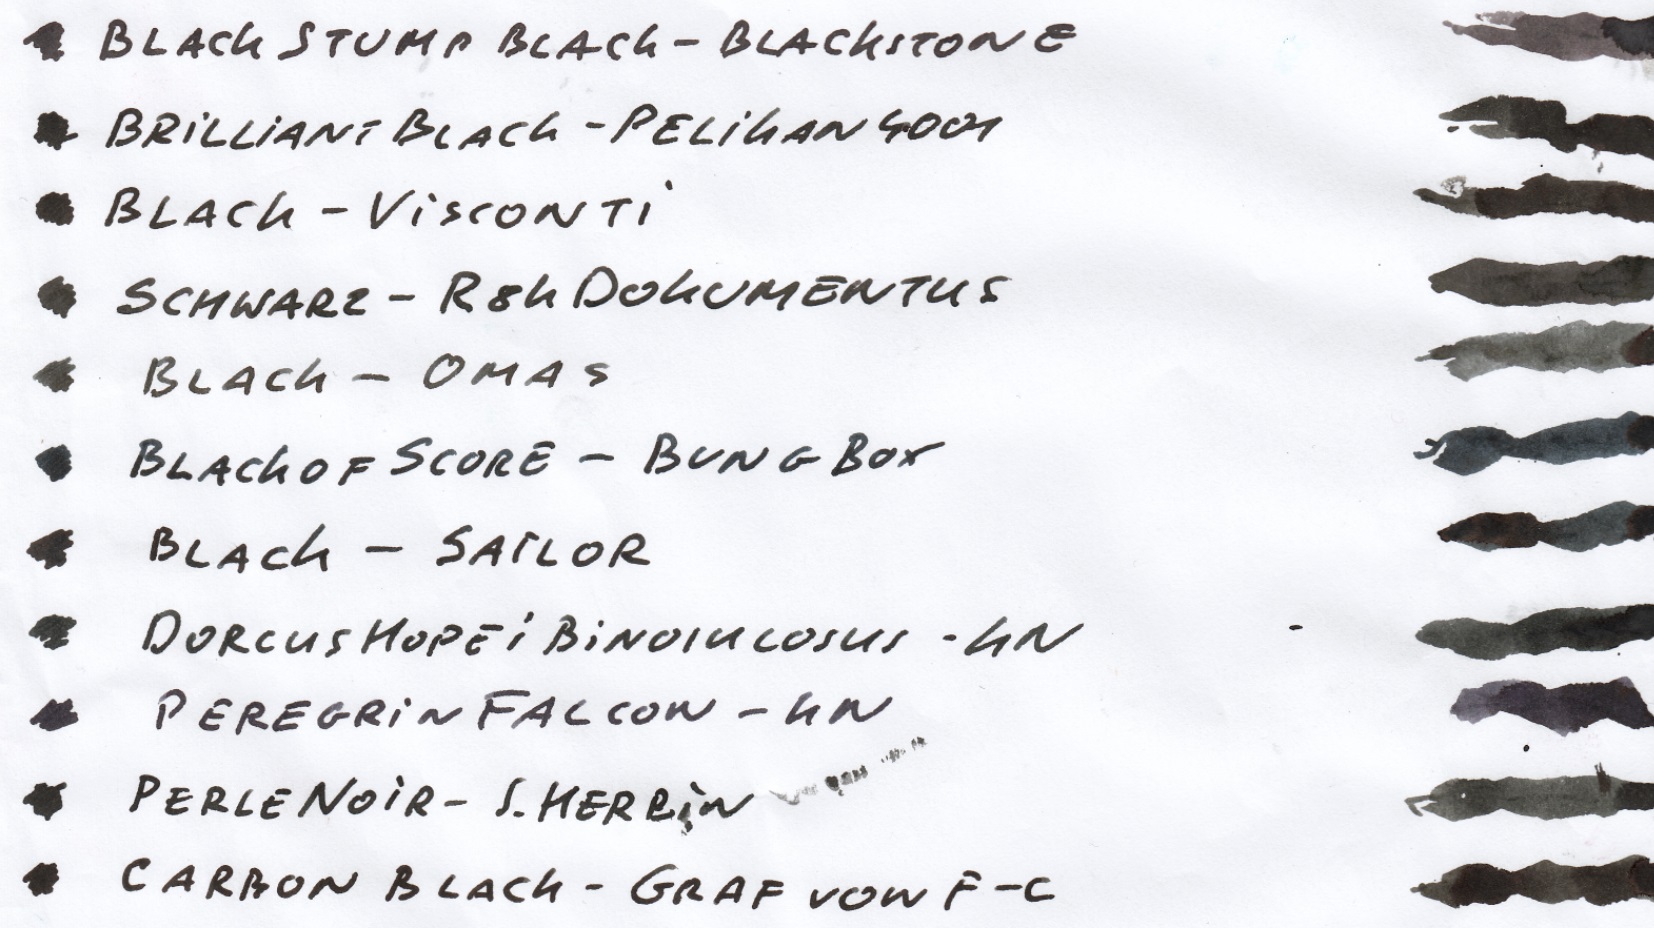 BLACK STUMP BLACK - BLACKSTONE
BRILLIANT BLACK - PELIKAN 4001
BLACK - VISCONTI
SCHWARZ - R&K DOKUMENTUS
BLACK - OMAS
BLACK OF SCORE - BUNGBOX
BLACK - SAILOR
DORCUS HOPEI - KN
PEREGRIN FALCON - KN
PERLE NOIR - J. HERBIN
CARBON BLACK - GRAF VON F-C